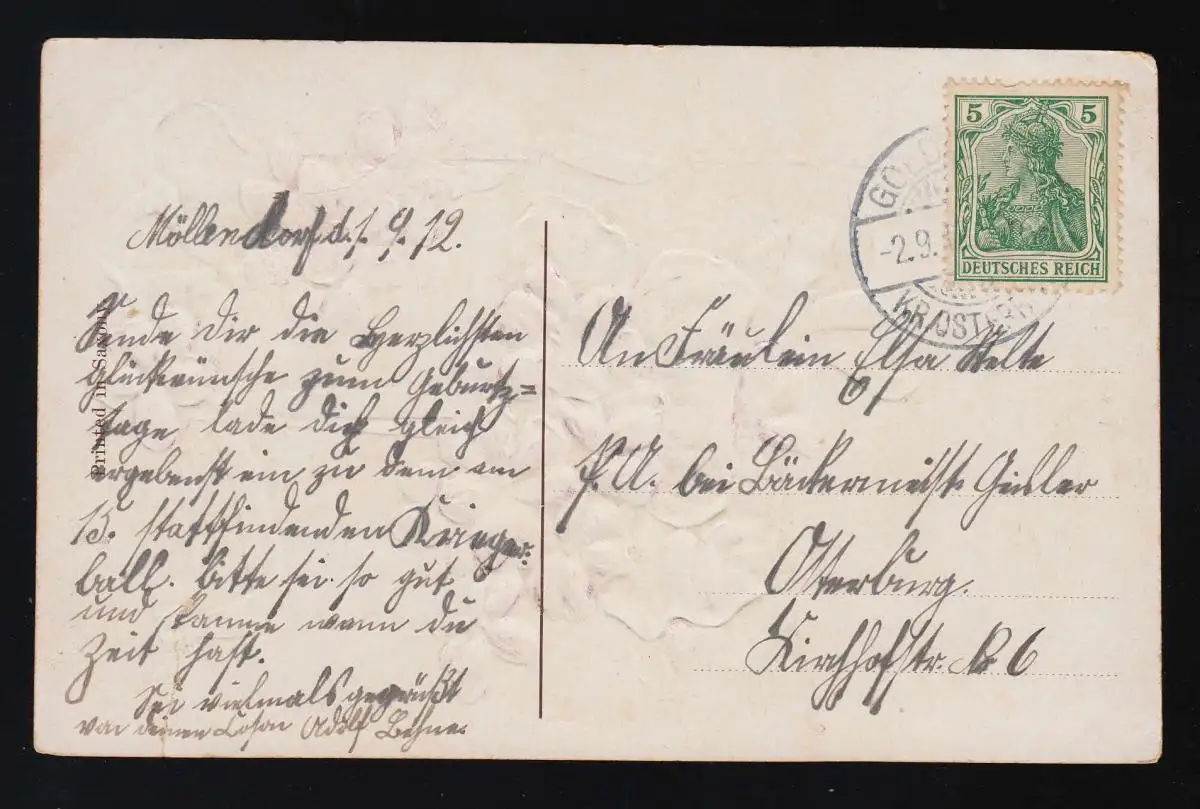 Möllendorf d. 1. 9. 12.
Sende dir die Herzlichsten
glückwünsche zum Geburts=
tage lade dich gleich
ergebenst ein zu dem am
15. stattfindenden Krieger-
ball. bitte sei so gut
und komme wenn du
Zeit hast.
Sei vielmals gegrüßt
von deinem Adolf Behne.
Printed in Saxony
5 5
DEUTSCHES REICH
-2.9.
KR. OSTERB
An Fräulein Elsa Nelte
P. A. bei Bäckermeist.
Osterburg.
Kirchhofstr. No 6